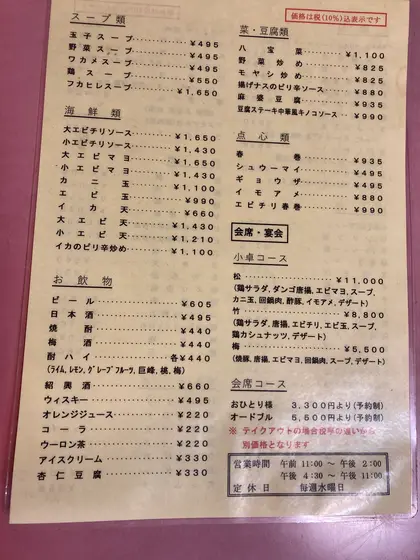 スープ類
玉子スープ………¥495
野菜スープ………¥495
ワカメスープ………¥495
鶏スープ………¥550
フカヒレスープ………¥1,650
海鮮類
大エビチリソース………¥1,650
小エビチリソース………¥1,430
大エビマヨ………¥1,650
小エビマヨ………¥1,430
カニ玉………¥1,100
エビ玉………¥990
イカ天………¥660
大エビ天………¥1,430
小エビ天………¥1,210
イカのピリ辛炒め………¥1,100
お飲物
ビール………¥605
日本酒………¥495
焼酎………¥440
梅酒………¥440
酎ハイ………各¥440
(ライム,レモン,グレープフルーツ,巨峰,桃,梅)
紹興酒………¥660
ウィスキー………¥495
オレンジジュース………¥220
コーラ………¥220
ウーロン茶………¥220
アイスクリーム………¥330
杏仁豆腐………¥330
価格は税(10%)込表示です
菜・豆腐類
八宝菜………¥1,100
野菜炒め………¥825
モヤシ炒め………¥825
揚げナスのピリ辛ソース………¥880
麻婆豆腐………¥935
豆腐ステーキ中華風キノコソース………¥990
点心類
春巻………¥935
シュウーマイ………¥495
ギョウザ………¥495
イモアメ………¥880
エビチリ春巻………¥990
会席・宴会
小卓コース
松………¥11,000
(鶏サラダ、ダンゴ唐揚、エビマヨ、スープ、
カニ玉、回鍋肉、酢豚、イモアメ、デザート)
竹………¥8,800
(鶏サラダ、唐揚、エビチリ、エビ玉、スープ、
鶏カシュナッツ、デザート)
梅………¥5,500
(焼豚、唐揚、エビマヨ、回鍋肉、スープ、デザート)
会席コース
おひとり様 3,300円より(予約制)
オードブル 5,500円より(予約制)
※ テイクアウトの場合税率の違いから
別価格となります
営業時間 午前 11:00 〜 午後 2:00
午後 4:30 〜 午後 11:00
定休日 毎週水曜日